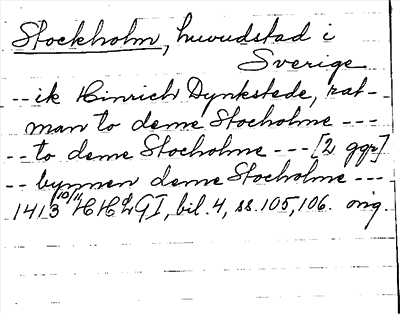 Stockholm, huvudstad i
Sverige
-- ik Hinrich Dynkstede, rat-
man to deme Stocholme ---
-- to deme Stocholme --- [2 ggr]
-- bynnen deme Stocholme ---
1413 10/11 HH&GI, bil. 4, ss. 105, 106. orig.